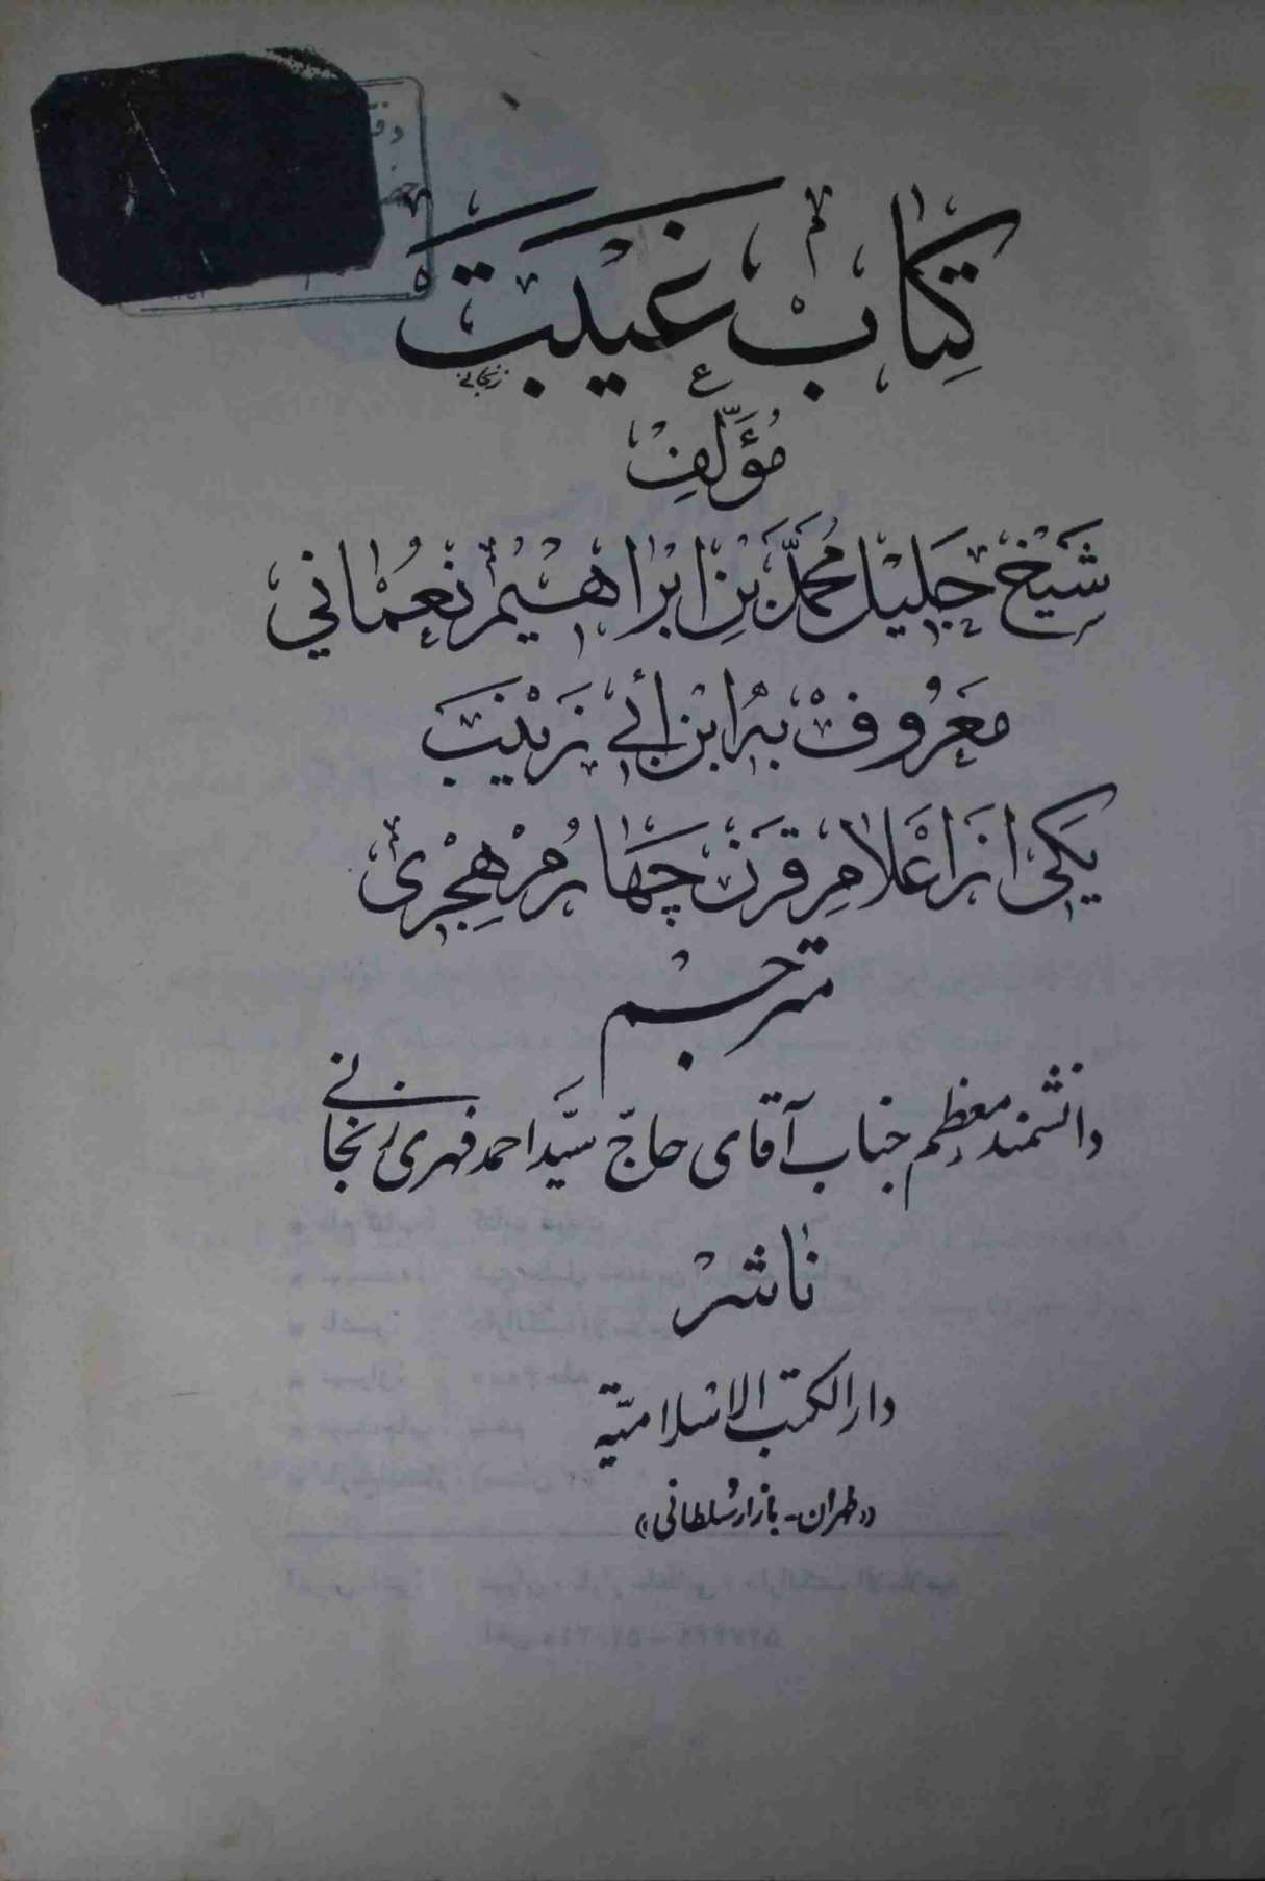 کتاب غیبت
زنجانی
مؤلف
شیخ جلیل محمد بن ابراهیم نعمانی
معروف به ابن ابی زینب
یکی از اعلام قرن چهارم هجری
مترجم
دانشمند معظم جناب آقای حاج سید احمد فهری زنجانی
ناشر
دار الکتب الاسلامیة
«طهران - بازار سلطانی»